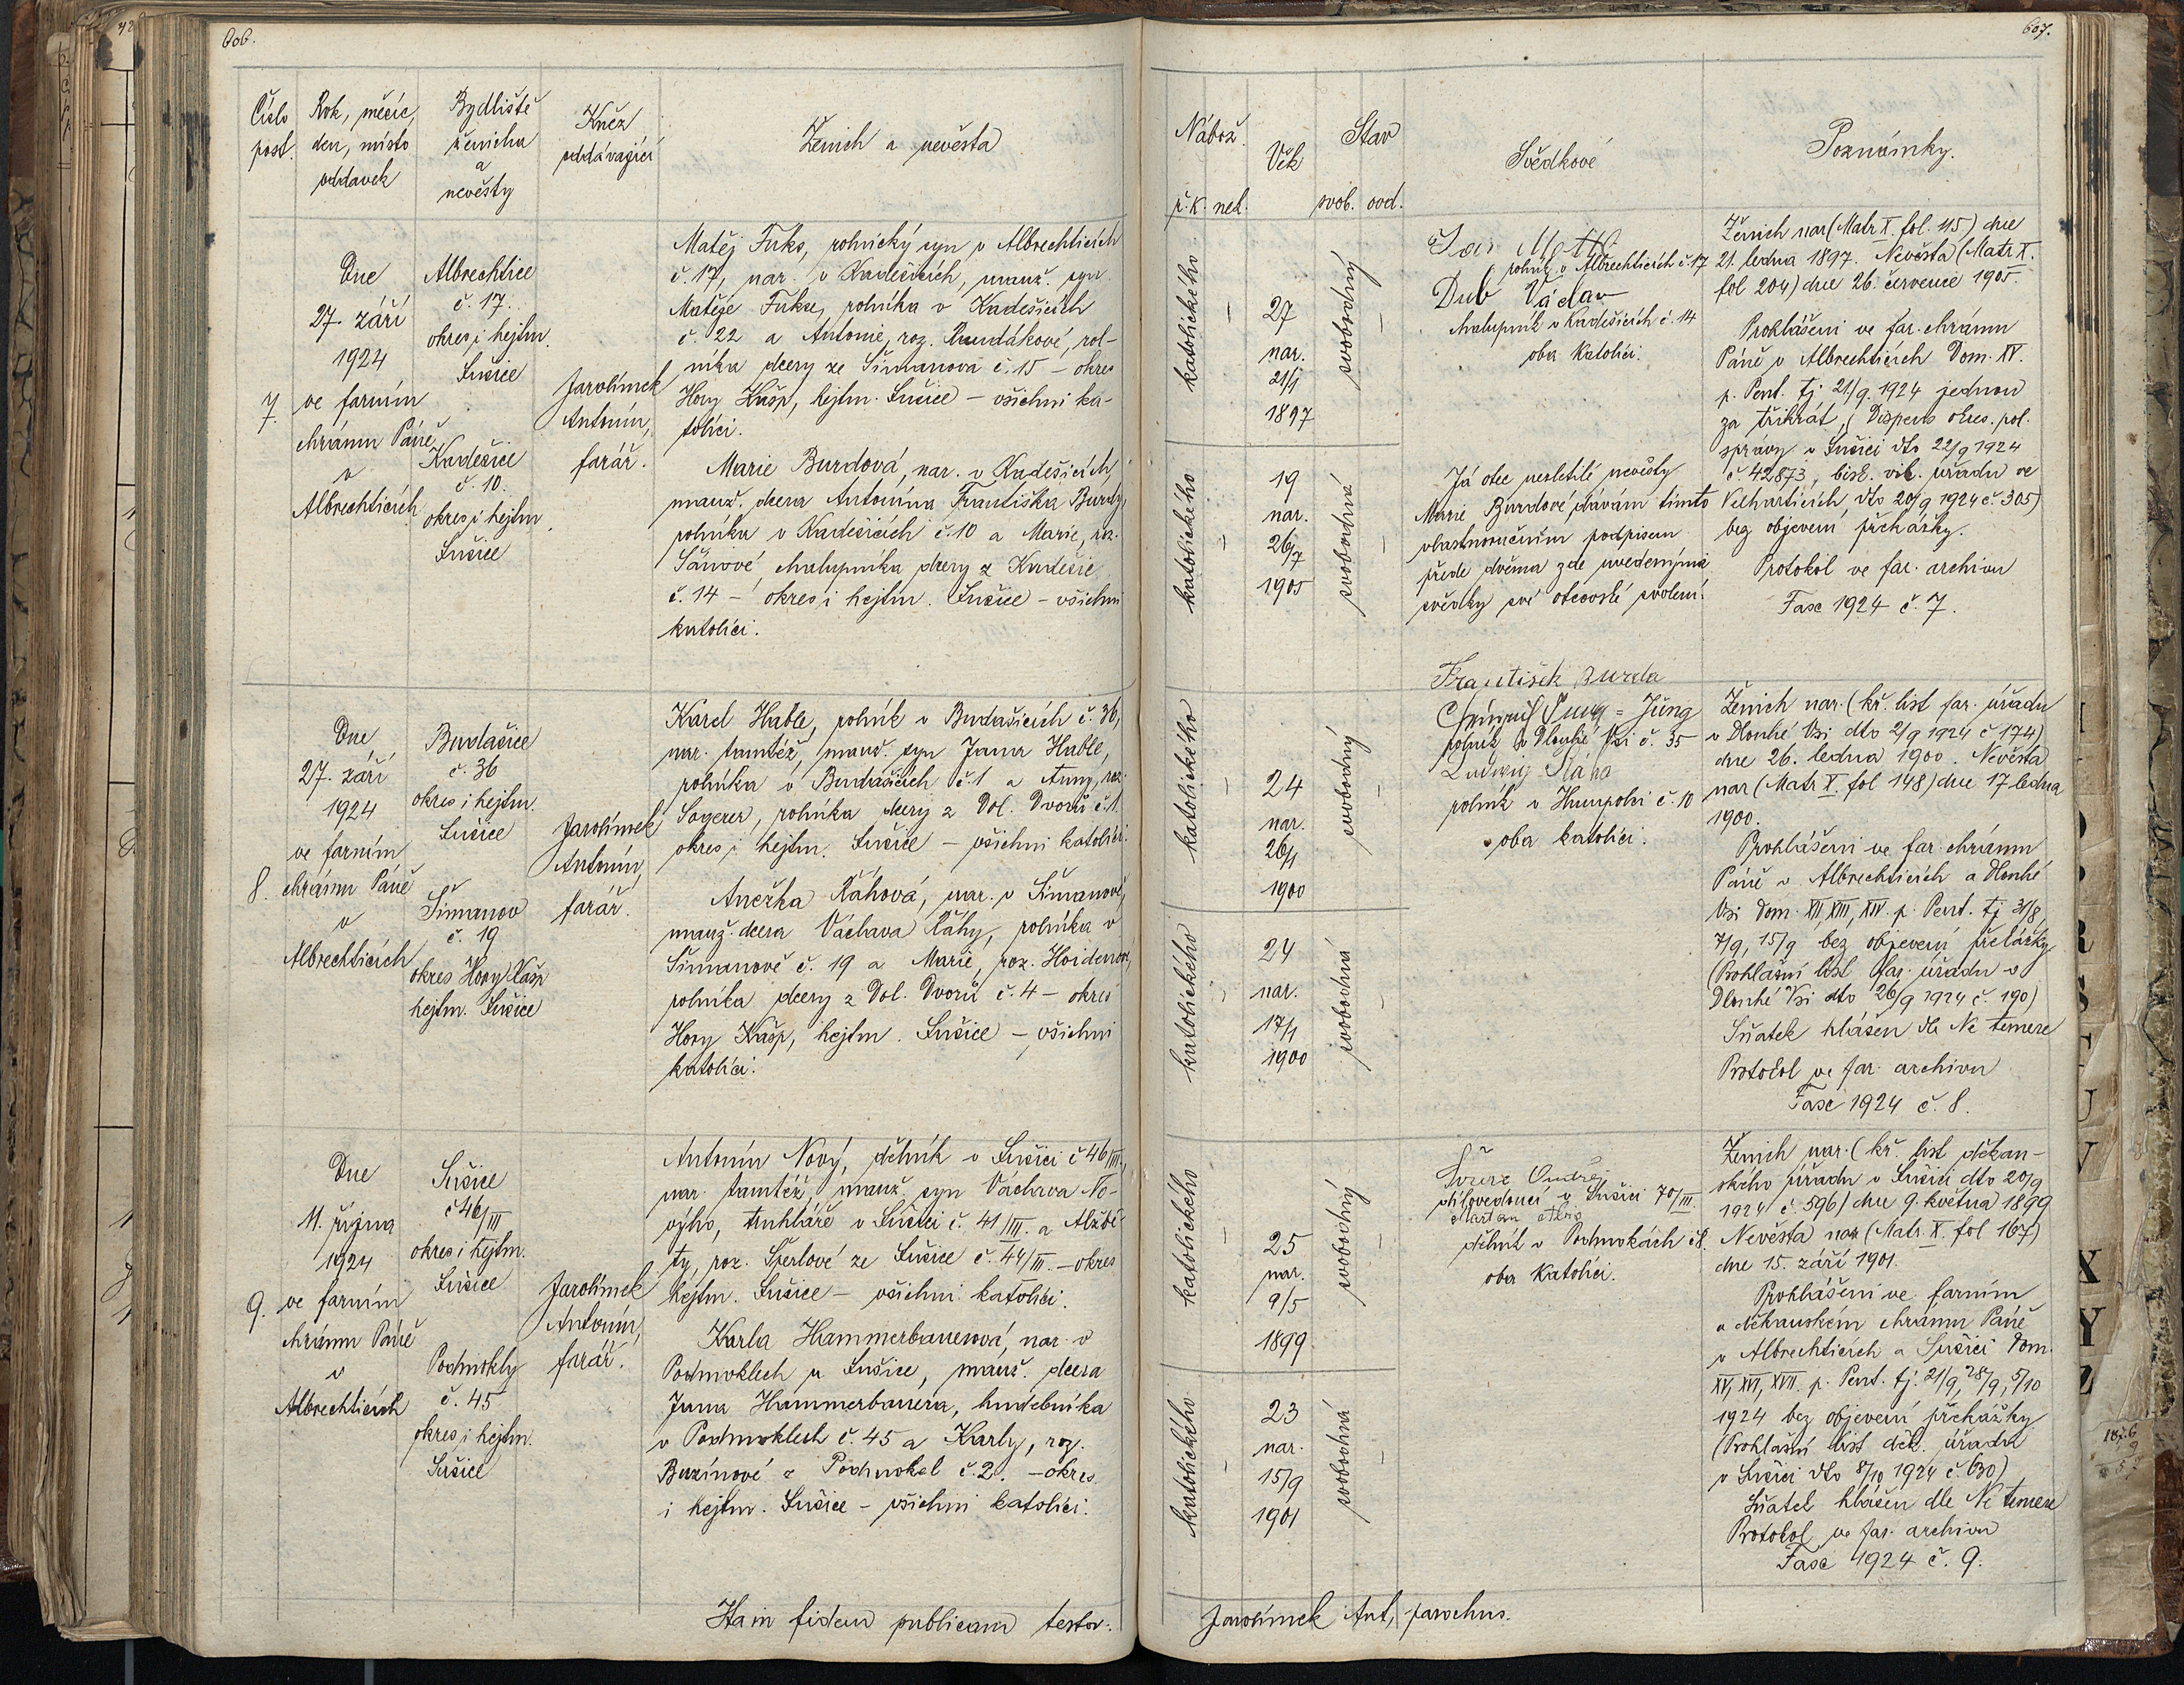 606.
Číslo
post.
Rok, měsíc,
den, místo
oddavek
Bydliště
ženicha
a
nevěsty
Kněz
oddávající
Ženich a nevěsta
7.
Dne
27. září
1924
ve farním
chrámu Páně
v
Albrechticích
Albrechtice
č. 17.
okres i hejtm.
Sušice
Kadešice
č. 10.
okres i hejtm.
Sušice
Jarolímek
Antonín,
farář.
Matěj Fuks, rolnický syn v Albrechticích
č. 17, nar. v Kadešicích, manž. syn
Matěje Fukse, rolníka v Kadešicích
č. 22 a Antonie, roz. , rol-
níka dcery ze Šimanova č. 15 – okres
Hory Kašp, hejtm. Sušice – všichni ka-
tolíci.
Marie Burdová, nar. v Kadešicích,
manž. dcera Antonína Františka Burdy,
rolníka v Kadešicích č. 10 a Marie, roz.
, chalupníka dcery z Kadešic
č. 14 – okres i hejtm. Sušice – všichni
katolíci.
8.
Dne
27. září
1924
ve farním
chrámu Páně
v
Albrechticích
Budašice
č. 36
okres i hejtm.
Sušice
Šimanov
č. 19
okres Hory Kašp
hejtm. Sušice
Jarolímek
Antonín,
farář.
Karel Hable, rolník v Budašicích č. 36,
nar. tamtéž, manž. syn Jana Hable,
rolníka v Budašicích č. 1 a Anny, roz.
Sagerer, rolníka dcery z Dol. Dvorů č. 1.
okres i hejtm. Sušice – všichni katolíci.
Anežka Ráhová, nar. v Šimanově,
manž. dcera Václava Ráhy, rolníka v
Šimanově č. 19 a Marie, roz.
rolníka dcery z Dol. Dvorů č. 4 – okres
Hory Kašp, hejtm. Sušice – všichni
katolíci.
9.
Dne
11. října
1924
ve farním
chrámu Páně
v
Albrechticích
Sušice
č 46/III
okres i hejtm.
Sušice
Podmokly
č. 45
okres i hejtm.
Sušice
Jarolímek
Antonín,
farář.
Antonín Nový, dělník v Sušici č 46/III.,
nar. tamtéž, manž. syn Václava No-
výho, truhláře v Sušici č. 41/III. a Alžbě-
ty, roz. Šperlové ze Sušice č. 44/III. – okres
hejtm. Sušice – všichni katolíci.
Karla Hammerbauerová, nar. v
Podmoklech u Sušice, manž. dcera
Jana Hammerbauera, hudebníka
v Podmoklech č. 45 a Karly, roz.
z Podmokel č. 2. – okres
i hejtm. Sušice – všichni katolíci.
Ita in fidem publicam testor:
607.
Nábož.
ř. k. nek.
Věk
Stav
svob. ovd.
Svědkové
Poznámky.
katolického
–
27
nar.
21/1
1897
svobodný
–
Jan
rolník v Albrechticích č. 17
Dub Václav
chalupník v Kadešicích č. 14
oba katolíci.
Ženich nar (Matr X. fol. 115) dne
21. ledna 1897. Nevěsta (Matr X.
fol 204) dne 26. července 1905.
Prohlášeni ve far. chrámu
Páně v Albrechticích Dom. XV.
p. Pent. tj 21/9. 1924 jednou
za třikrát, (Dispens okres. pol.
správy v Sušici dto 22/9 1924
č 42873, bisk. vik. úřadu ve
Velharticích, dto 20/9 1924 č. 305)
bez objevení překážky.
Protokol ve far. archivu
Fasc 1924 č. 7.
katolického
–
19
nar.
26/7
1905
svobodná
–
Já otec nezletilé nevěsty
Marie Burdové, dávám tímto
vlastnoručním podpisem
přede dvěma zde uvedenými
svědky své otcovské svolení.
František Burda
katolického
–
24
nar.
26/1
1900
svobodný
–
= Jüng
rolník v Dlouhé Vsi č. 35
Ludwig Ráha
rolník v Humpolci č. 10
oba katolíci.
Ženich nar. (kř. list far. úřadu
v Dlouhé Vsi dto 2/9 1924 č 174)
dne 26. ledna 1900. Nevěsta
nar (Matr X. fol 148) dne 17 ledna
1900.
Prohlášeni ve far. chrámu
Páně v Albrechticích a Dlouhé
Vsi Dom. XII, XIII, XIV. p. Pent. tj 31/8,
7/9, 15/9 bez objevení překážky
(Prohlašní list far. úřadu v
Dlouhé Vsi dto 26/9 1924 č. 190)
Sňatek hlášen dle Ne temere
Protokol ve far. archivu
Fasc 1924 č. 8.
katolického
–
24
nar.
17/1
1900
svobodná
–
katolického
–
25
nar.
9/5
1899.
svobodný
–
Ondřej
dílovedoucí v Sušici 70/III.
Martan
dělník v Podmokách č 8.
oba katolíci.
Ženich nar. (kř. list děkan-
ského úřadu v Sušici dto 20/9
1924 č. 596) dne 9. května 1899
Nevěsta nar (Matr. X. fol 167)
dne 15. září 1901.
Prohlášeni ve farním
a děkanském chrámu Páně
v Albrechticích a Sušici Dom.
XV, XVI, XVII. p. Pent. tj. 21/9, 28/9, 5/10
1924 bez objevení překážky
(Prohlašní list děk. úřadu
v Sušici dto 8/10 1924 č 630)
Sňatek hlášen dle Ne temere
Protokol ve far. archivu
Fasc 1924 č. 9.
katolického
–
23
nar.
15/9
1901
svobodná
–
Jarolímek Ant, parochus.